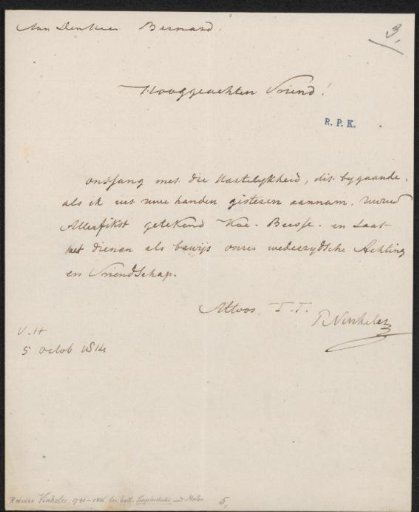 Aan den Heer Bernard.
3,
Hooggeachten Vriend!
R. P. K.
ontfang met die Hartelykheid, dit bygaande
als ik uit uwe handen gisteren aannam. uwen
Allerfikst getekend Beesje. en Laat
het dienen als bewijs onzer wederzydsche Achting
en Vriendschap.
Altoos T. T.
R Vinkeles
V. H
5 octob 1814
Reinier Vinkeles, 1741-1816
5,